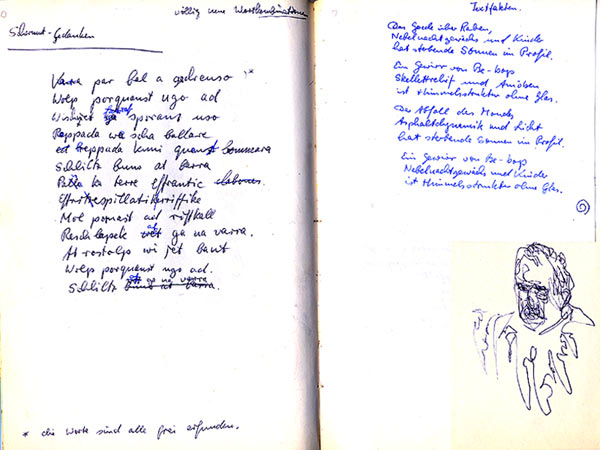 völlig neue Wortkombinationen
Scharmut-Gedanken
Varra par bel a gadrenso *
Wolp porquenst ugo ad
ga sporans uso
Pappada we scha ballare
ed treppada kumi quenst bommcara
Schlitz buns at barra
ka terre Effrantic
Effritrespillatikerriffike
Mol pornast ad riffkall
ga na varra.
At rostolp wi jet baut
Wolp porquenst ugo ad.
Schlitz buns at barra.
* die Worte sind alle frei erfunden.
Textfakten.
Das Gerede über Raben,
Nebelnachtgewächs und Kinder
hat sterbende Sonnen im Profil.
Ein Gewirr von Be-bops
Skelettrelief und Amöben
ist Himmelsstruktur ohne Glas.
Der Abfall des Monds
Asphaltdynamik und Licht
hat sterbende Sonnen im Profil.
Ein Gewirr von Be-bops
Nebelnachtgewächs und Kinder
ist Himmelsstruktur ohne Glas.